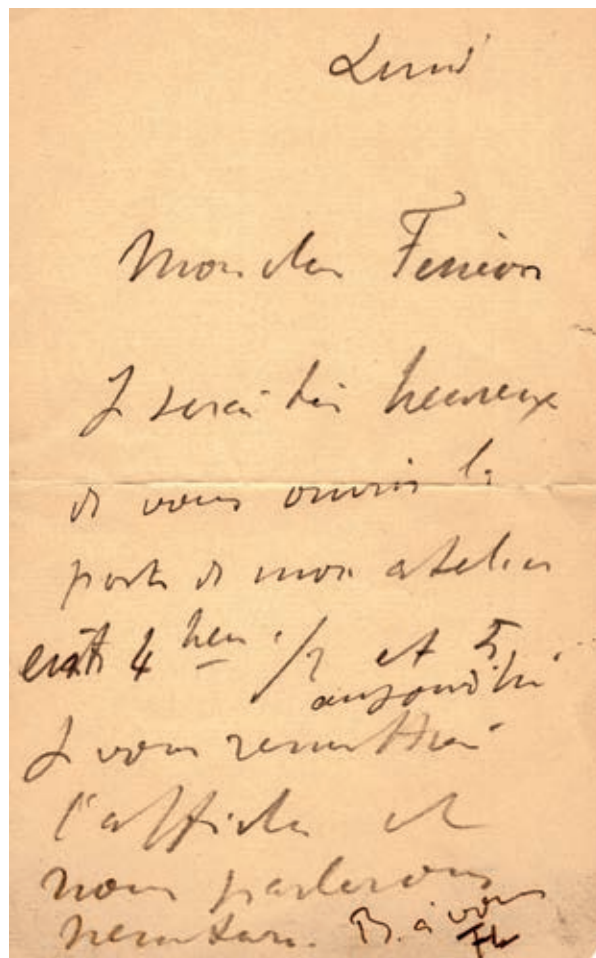 Lundi
Mon cher Fénéon
Je serai très heureux
de vous ouvrir la
porte de mon atelier
entre 4 heu. 1/2 et 5
aujourd'hui
Je vous remettrai
l'affiche et
nous parlerons
B. à vous